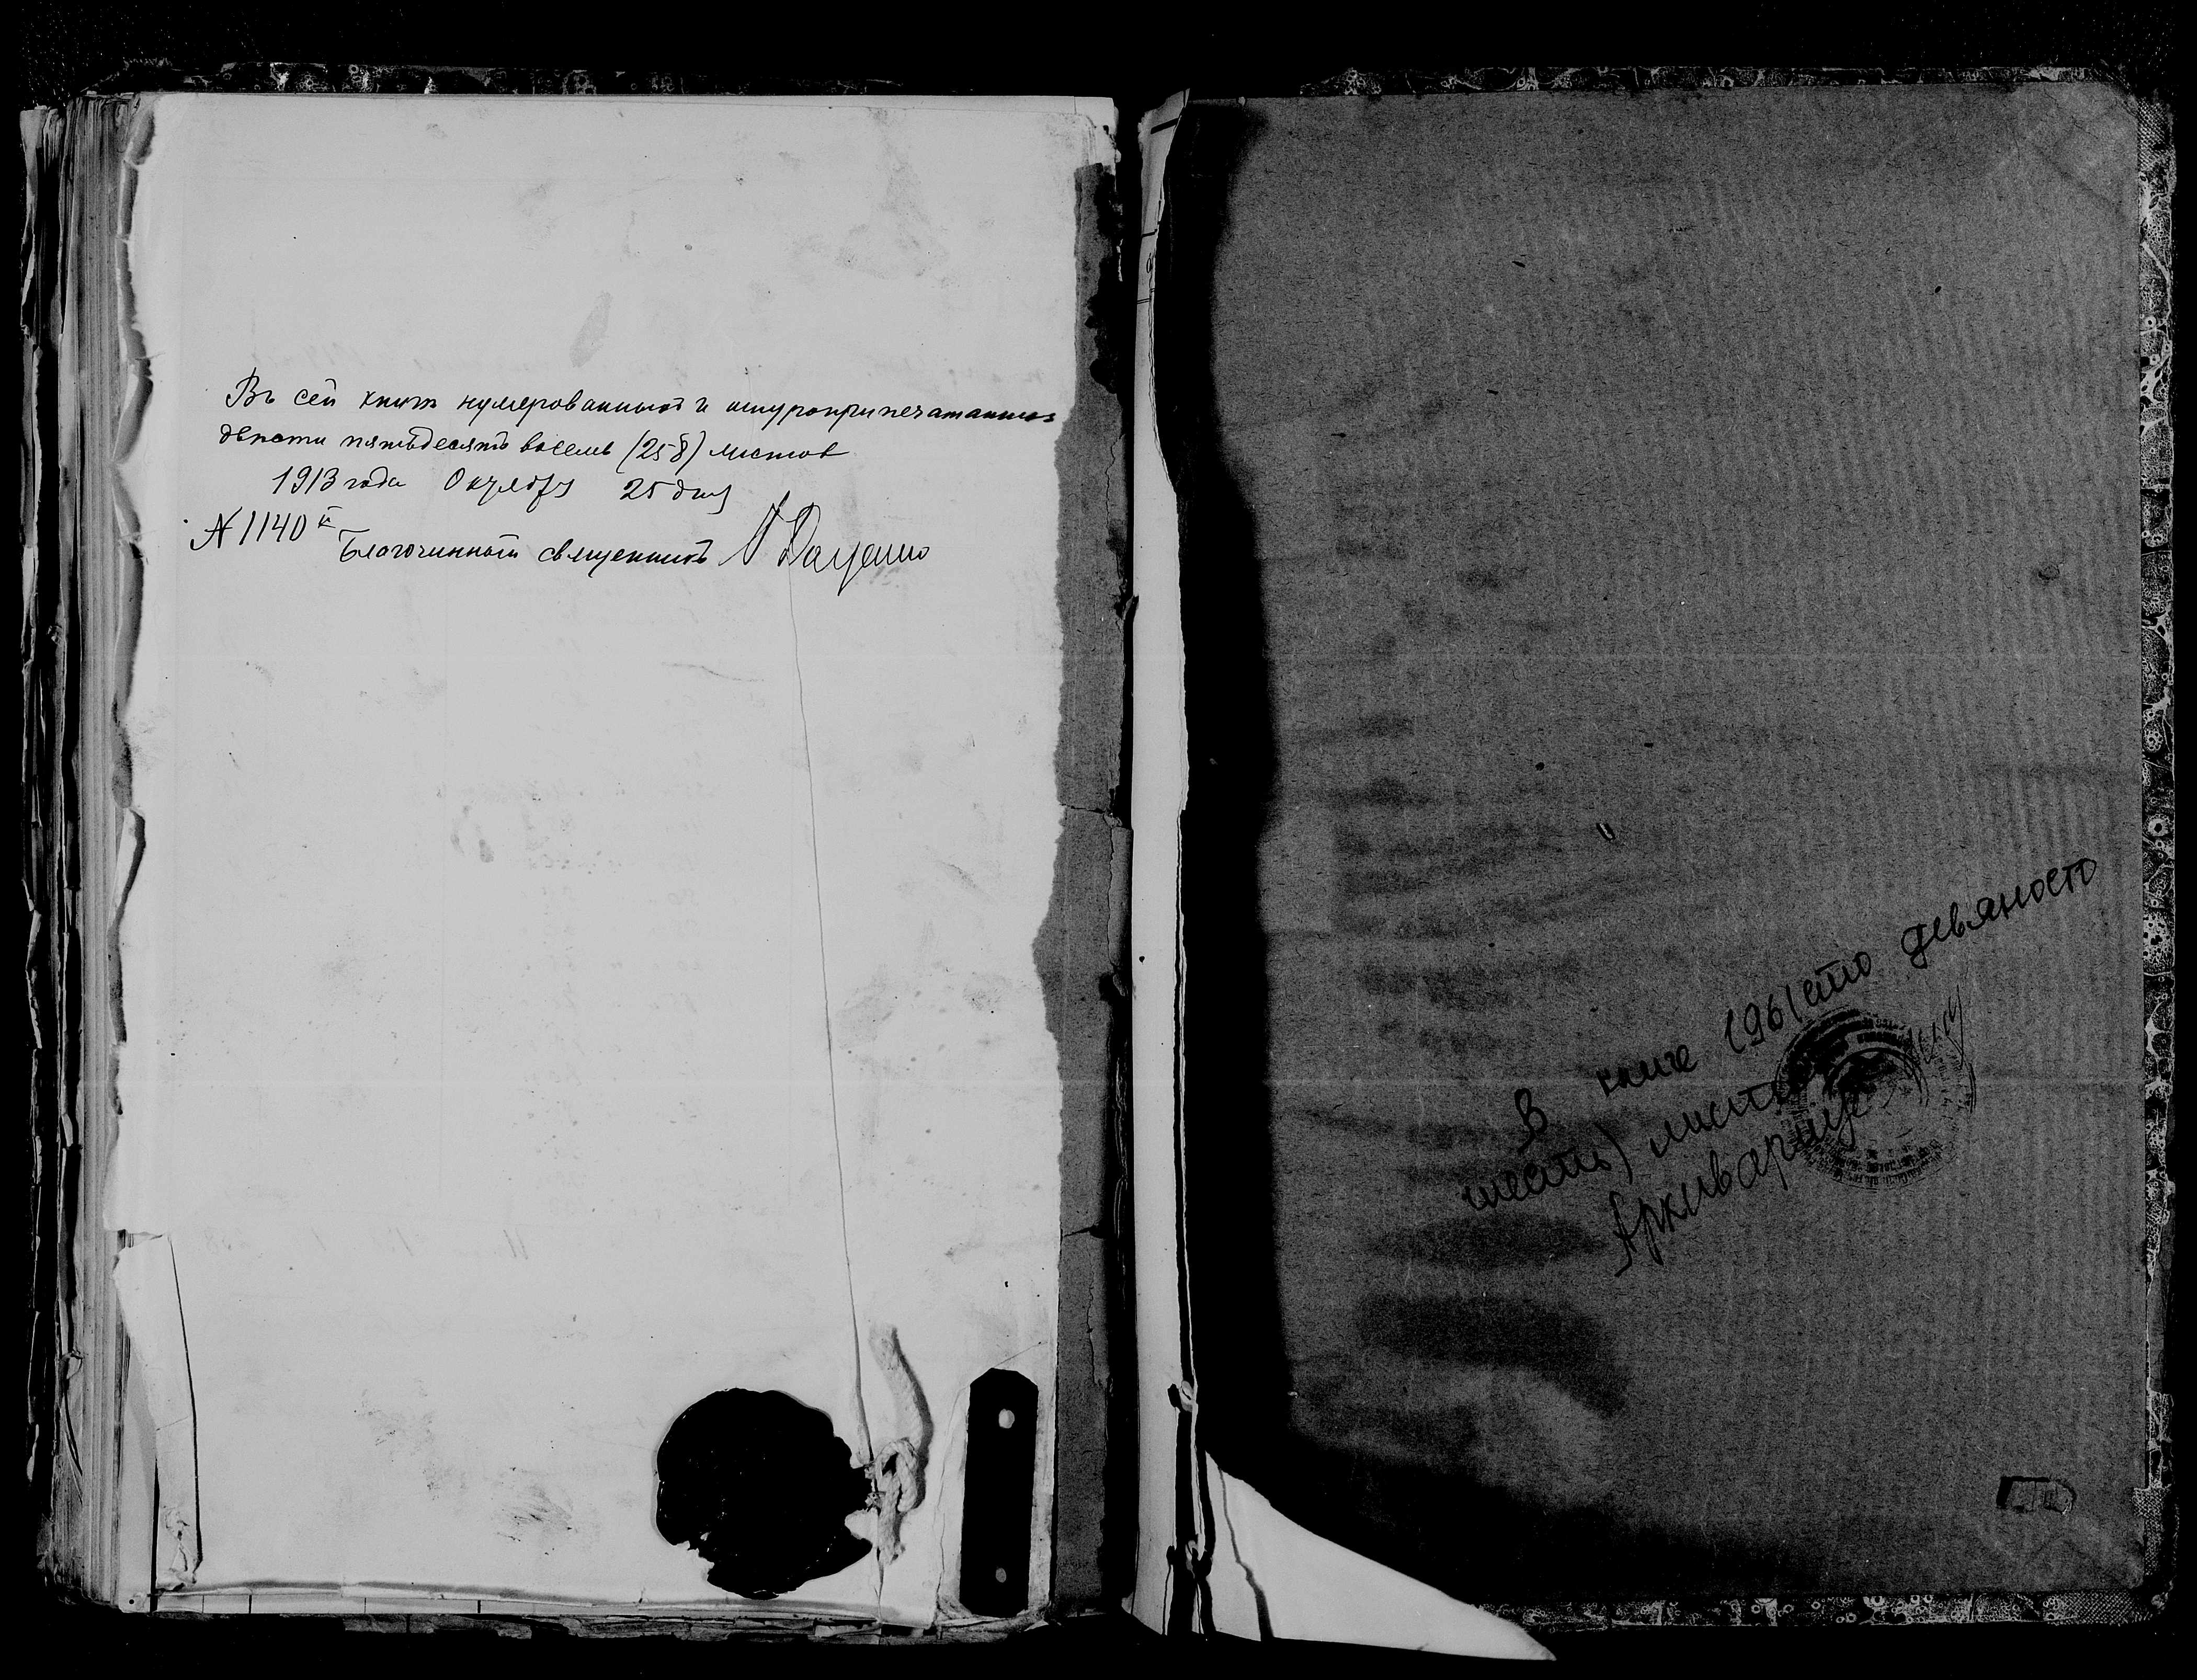 Въ сей книгѣ нумерованныхъ и шнуроприпечатанныхъ
двѣсти пятьдесятъ восемь (258) листов
1913 года Октября 25 дня
№ 1140й
Благочинный священникъ
В книге 196 (сто девяносто
шесть) листов
Архивариус